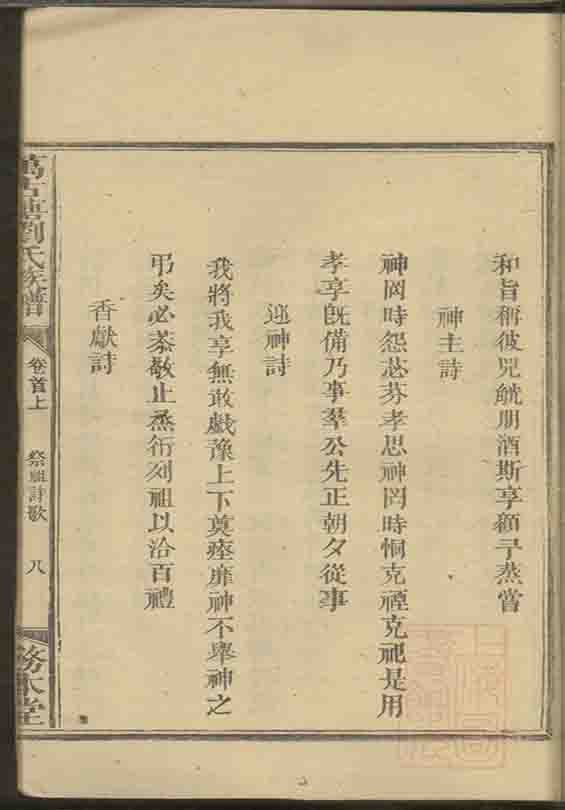 和旨稱彼兕觥朋酒斯享顧予蒸嘗
神主詩
神罔時怨苾芬孝思神罔時恫克禋克祀是用
孝享既備乃事羣公先正朝夕從事
迎神詩
我將我享無敢戲豫上下奠瘞靡神不舉神之
弔矣必恭敬止烝衎列祖以洽百禮
香獻詩
萬古塘劉氏族譜
卷首上
祭祖詩歌
八
務本堂